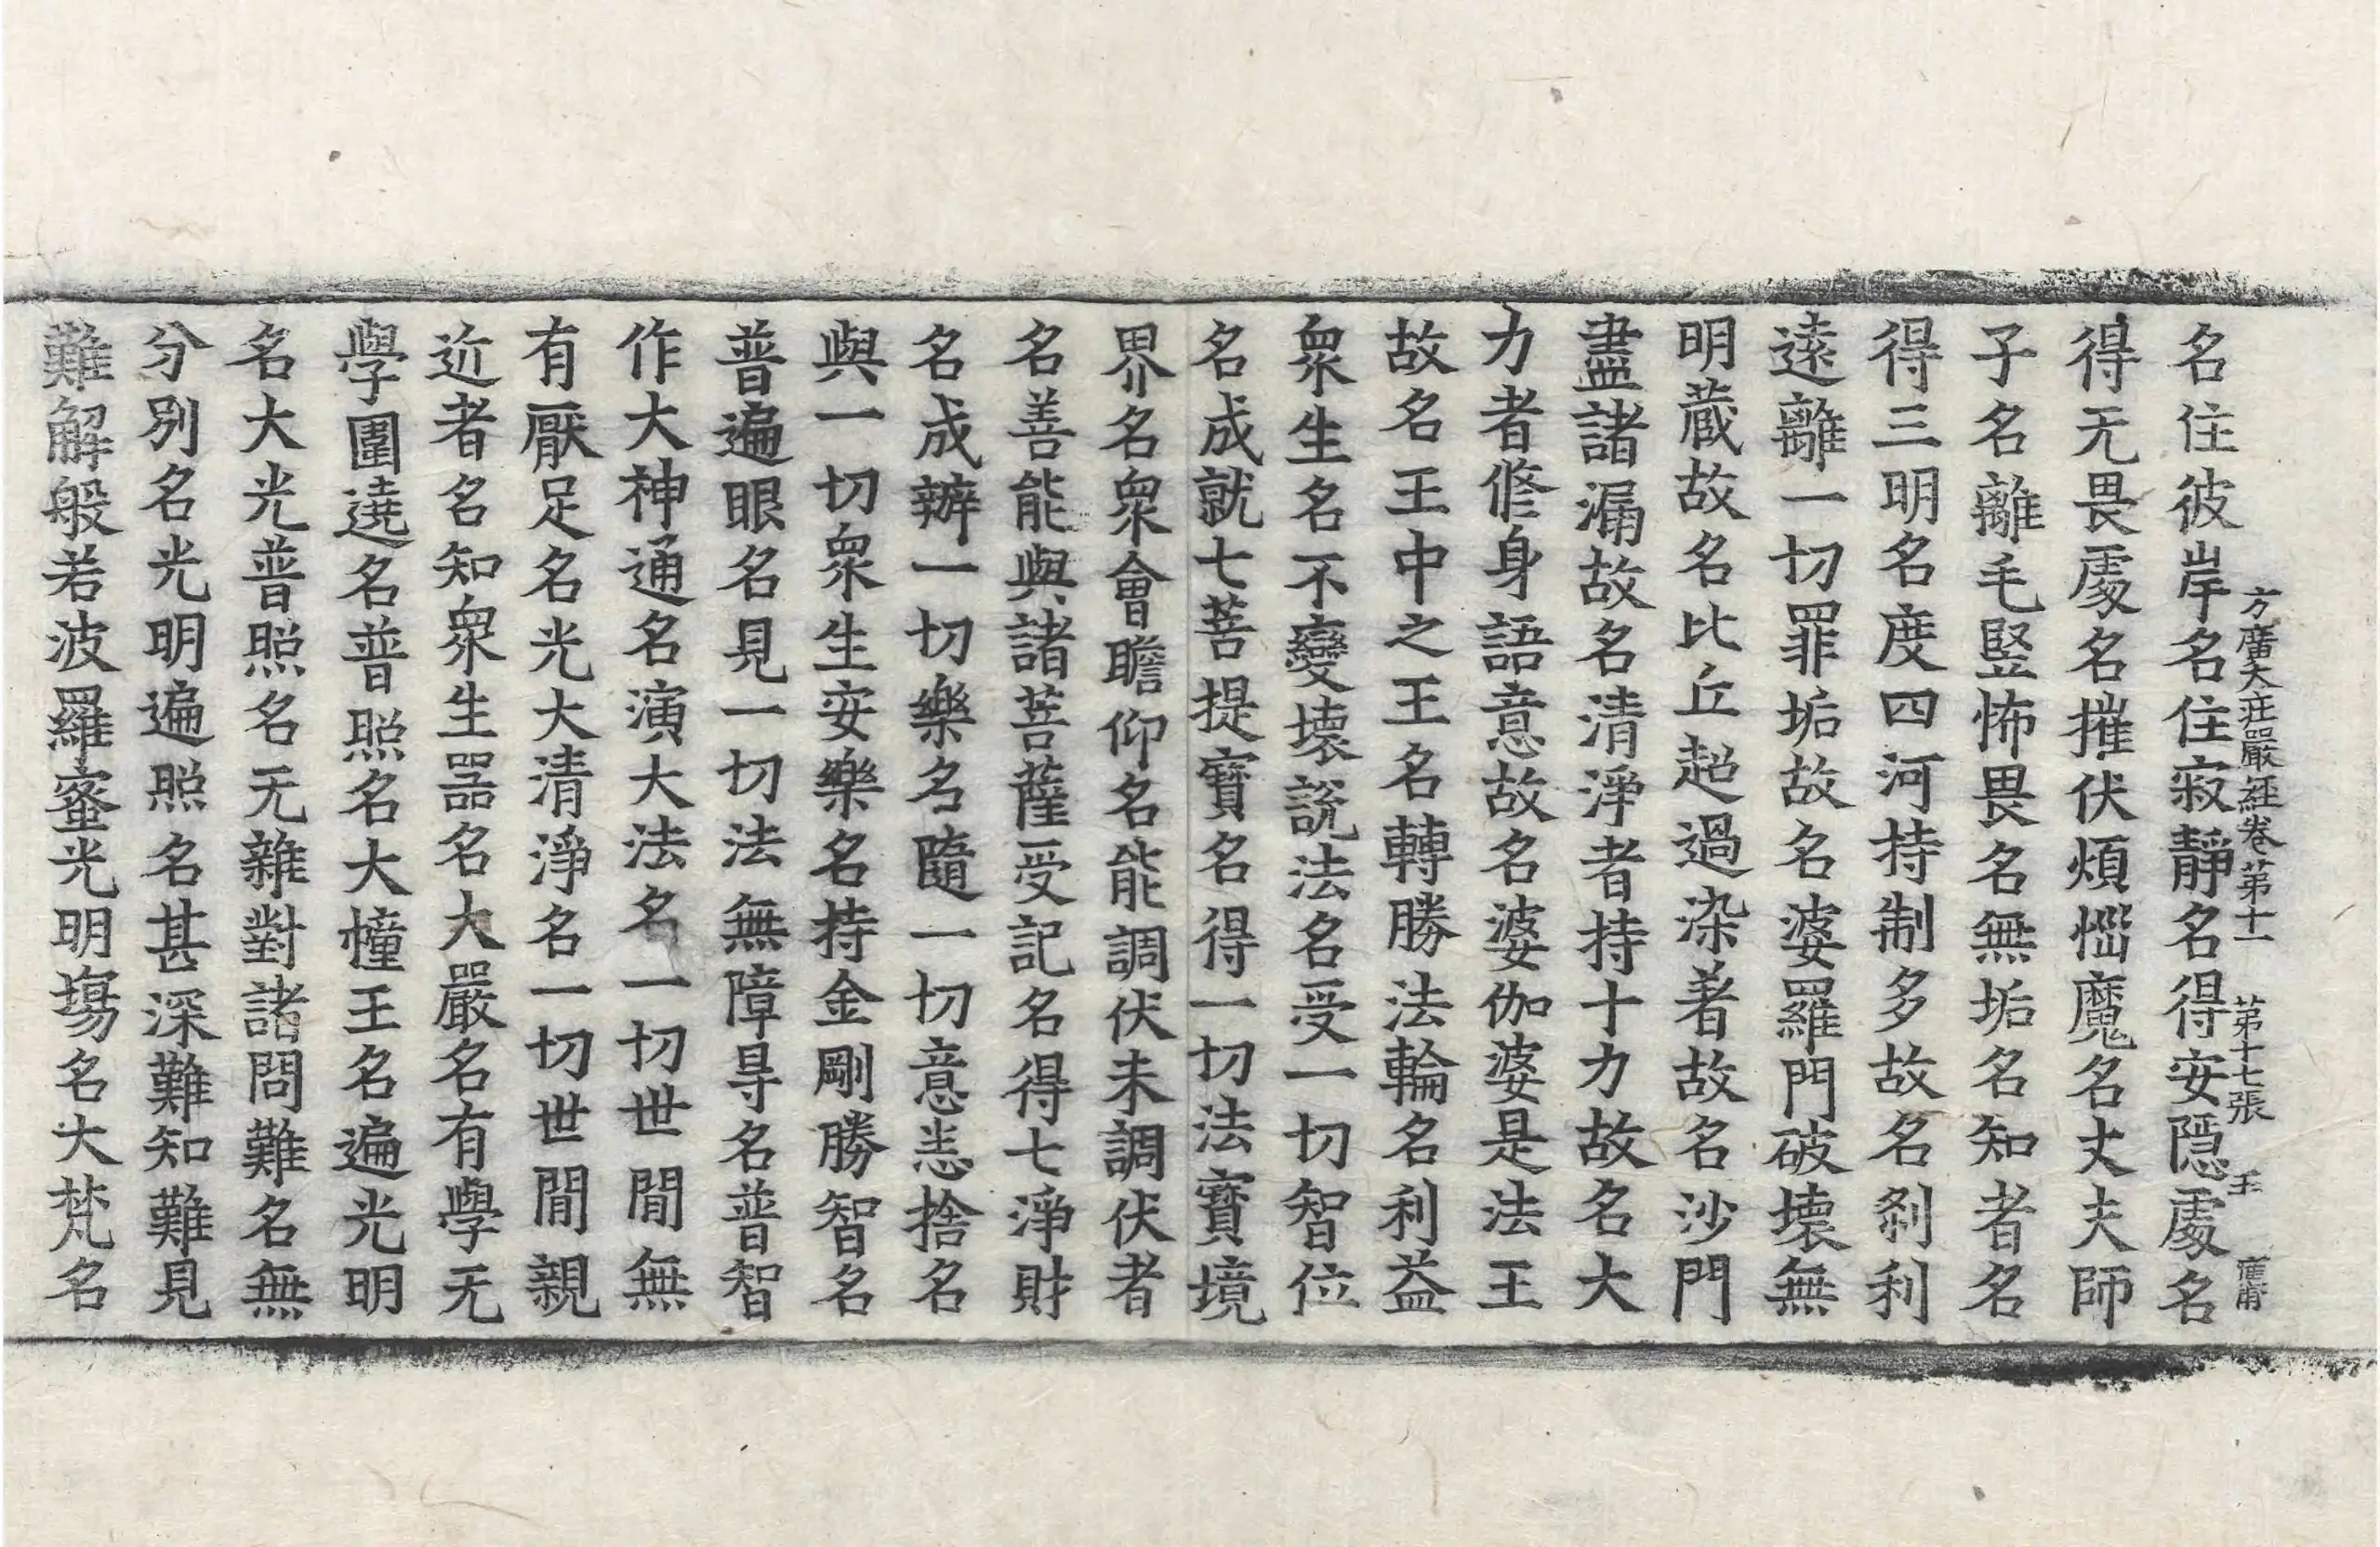 方廣大莊嚴經卷第十一　第十七張　王
名住彼岸名住寂靜名得安隱處名
得无畏處名摧伏煩惱魔名丈夫師
子名離毛竪怖畏名無垢名知者名
得三明名度四河持制多故名剎利
遠離一切罪垢故名婆羅門破壞無
明藏故名比丘超過染著故名沙門
盡諸漏故名清淨者持十力故名大
力者修身語意故名婆伽婆是法王
故名王中之王名轉勝法輪名利益
衆生名不變壞說法名受一切智位
名成就七菩提寶名得一切法寶境
界名衆會瞻仰名能調伏未調伏者
名善能與諸菩薩受記名得七淨財
名成辦一切樂名隨一切意恚捨名
與一切衆生安樂名持金剛勝智名
普遍眼名見一切法無障㝵名普智
作大神通名演大法名一切世閒無
有厭足名光大清淨名一切世閒親
近者名知衆生器名大嚴名有學无
學圍遶名普照名大幢王名遍光明
名大光普照名无雜對諸問難名無
分別名光明遍照名甚深難知難見
難解般若波羅蜜光明場名大梵名